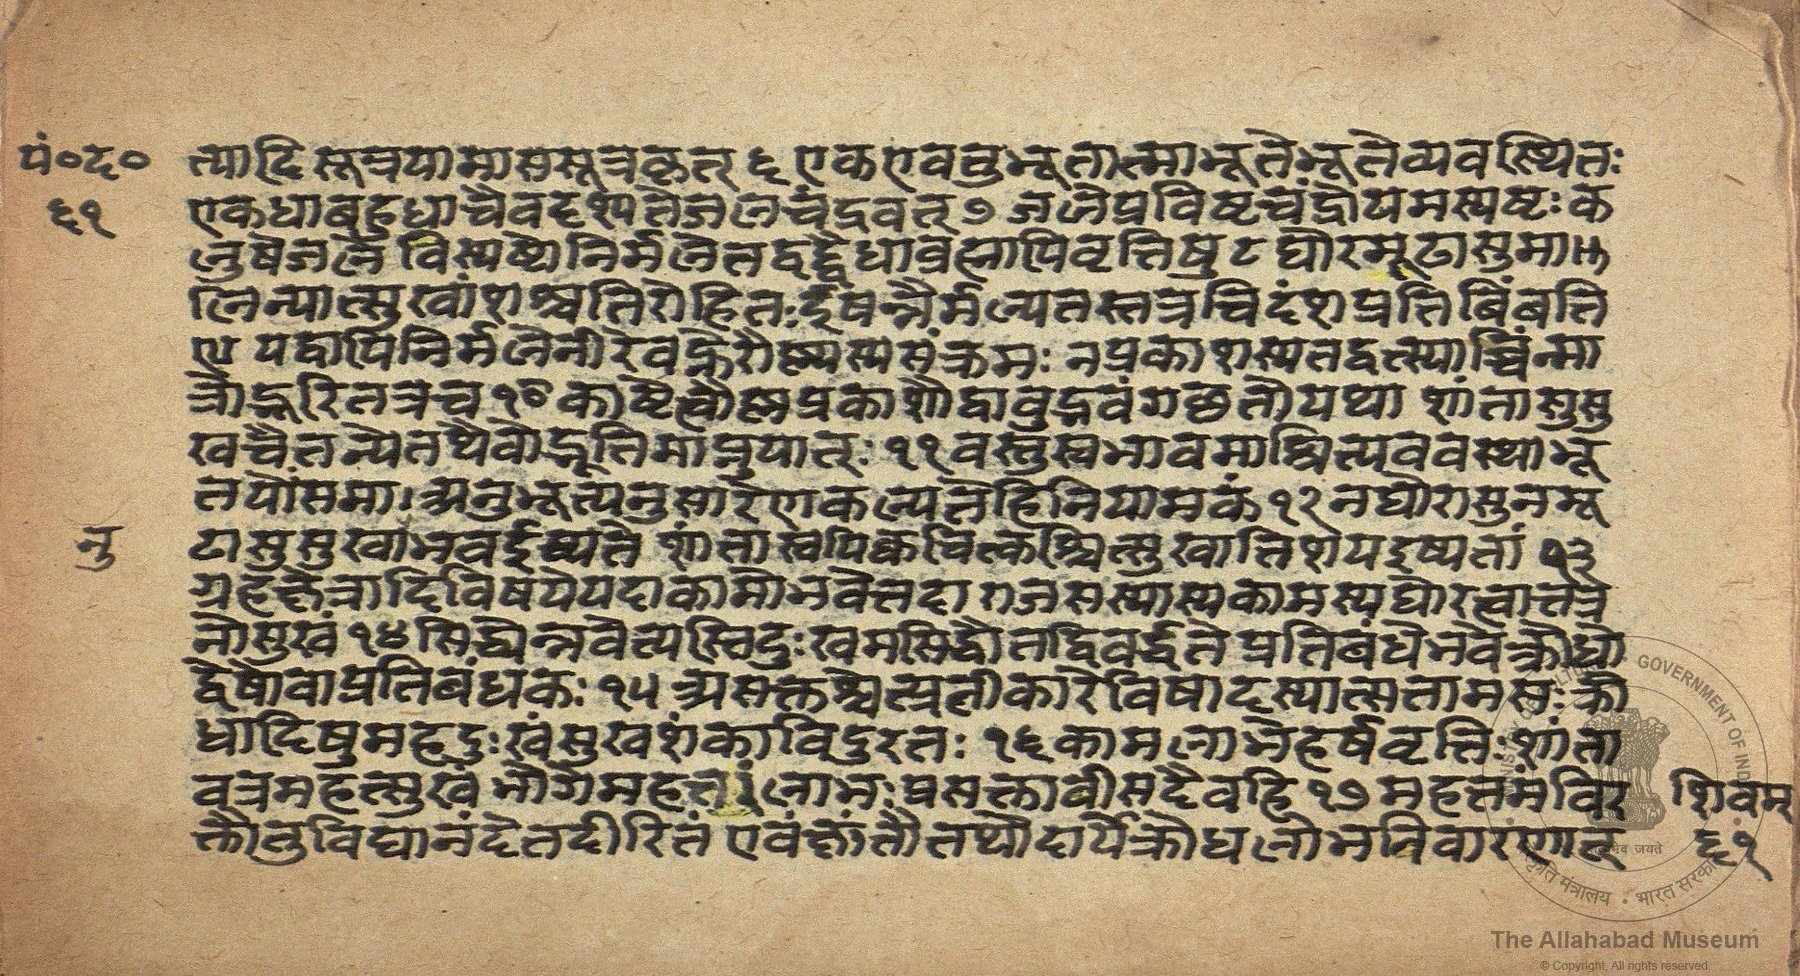 पं॰द॰
६१
त्यादि सूत्रयामाससूत्रकृत् ६ एकएवतुभूतात्माभूतेभूतेव्यवस्थितः
एकधाबहुधाचैवदृश्यतेजलचंद्रवत् ७ जलेप्रविष्टचंद्रोयमस्पष्टः क
लुषेजले विस्पष्टोनिर्मलेतद्वद्द्वेधाब्रह्मापिवृत्तिषु ८ घोरमूढासुमा
लिन्यात्सुखांशश्चतिरोहितः ईषन्नैर्मल्यतस्तत्रचिदंशप्रतिबिंबति
९ यद्वापिनिर्मलेनीरेवह्नेरौष्ण्यस्यसंक्रमः नप्रकाशस्यतद्वत्स्याच्चिन्मा
त्रोद्भूरितत्रच १० काष्टेत्वौष्णप्रकाशौद्वावुद्भवंगछतोयथा शांतासुसु
खचैतन्येतथैवोद्भूतिमाप्नुयात् ११ वस्तुस्वभावमाश्रित्यववस्थाभू
तयोःसमा। अनुभूत्यनुसारेणकल्प्यतेहिनियामकं १२ नघोरासुनमू
नु
ढासुसुखांभवईक्ष्यते शांतास्वपिक्वचित्कश्चित्सुखातिशयइष्यतां १३
ग्रहक्षेत्रादिविषयेयदाकामोभवेत्तदा राजसस्यास्यकामस्यघोरत्वात्तत्र
नोसुखं १४ सिद्ध्येन्नवेत्यस्तिदुःखमसिद्धौतद्विवर्द्धते प्रतिबंधेभवेत्क्रोधो
द्वेषोवाप्रतिबंधकः १५ अशक्तश्चेत्प्रतीकारेविषादस्यात्सतामसः क्रो
धादिषुमहदुःखंसुखशंकाविदुरतः १६ काम्यलाभेहर्षवृत्तिःशांता
तत्रमहत्सुखं भोगेमहत्त लाभःप्रसक्तावीसदैवहि १७ महत्तमंविर
शिवम्
क्तौतुविद्यानंदेतदीरितं एवंक्षांतौतथौदार्येक्रोधलोभनिवारणात्
६१
MINISTRY OF CULTURE • GOVERNMENT OF INDIA
सत्यमेव जयते
संस्कृति मंत्रालय • भारत सरकार
The Allahabad Museum
© Copyright, All rights reserved.